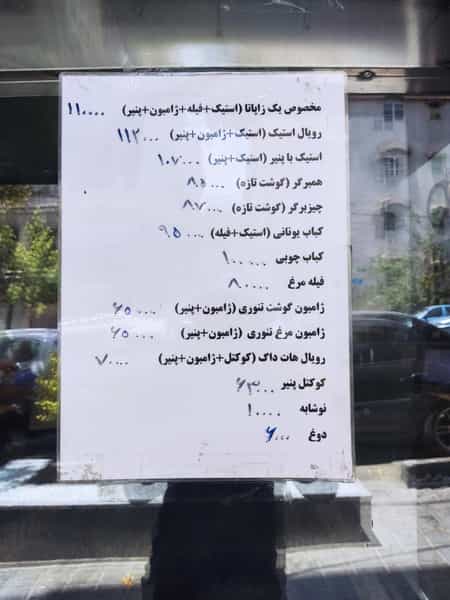 مخصوص یک زاپاتا (استیک+فیله+ژامبون+پنیر) ۱۱۰۰۰۰
رویال استیک (استیک+ژامبون+پنیر) ۱۱۲۰۰۰
استیک با پنیر (استیک+پنیر) ۱۰۷۰۰۰
همبرگر (گوشت تازه) ۸۵۰۰۰
چیزبرگر (گوشت تازه) ۸۷۰۰۰
کباب یونانی (استیک+فیله) ۹۵۰۰۰
کباب چوبی ۱۰۰۰۰۰
فیله مرغ ۸۰۰۰۰
ژامبون گوشت تنوری (ژامبون+پنیر) ۶۵۰۰۰
ژامبون مرغ تنوری (ژامبون+پنیر) ۶۵۰۰۰
رویال هات داگ (کوکتل+ژامبون+پنیر) ۷۰۰۰۰
کوکتل پنیر ۶۳۰۰۰
نوشابه ۱۰۰۰۰
دوغ ۶۰۰۰